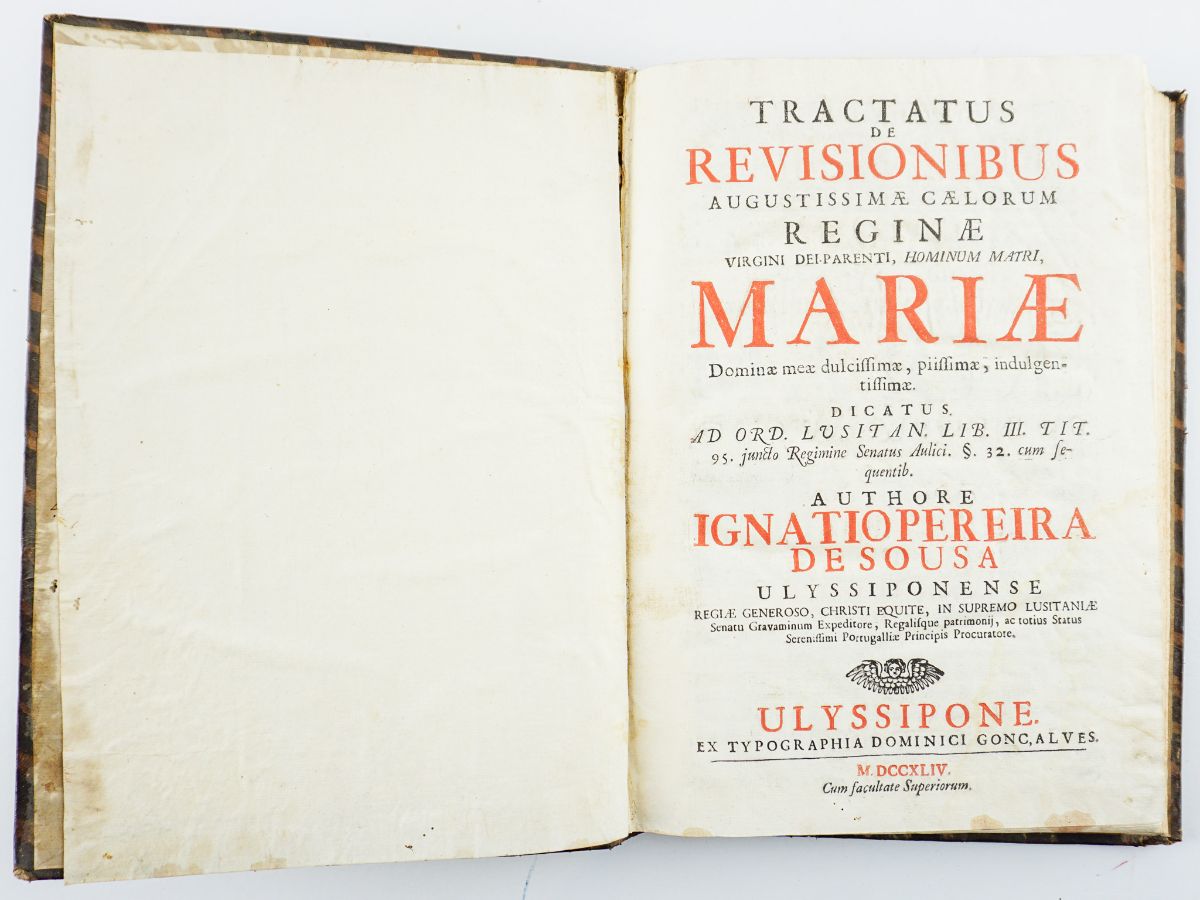 TRACTATUS
DE
REVISIONIBUS
AUGUSTISSIMÆ CÆLORUM
REGINÆ
VIRGINI DEI-PARENTI, HOMINUM MATRI,
MARIÆ
Dominæ meæ dulcissimæ, piissimæ, indulgen-
tissimæ.
DICATUS.
AD ORD. LVSITAN. LIB. III. TIT.
95. juncto Regimine Senatus Aulici. §. 32. cum se-
quentib.
AUTHORE
IGNATIO PEREIRA
DE SOUSA
ULYSSIPONENSE
REGIÆ GENEROSO, CHRISTI EQUITE, IN SUPREMO LUSITANIÆ
Senatu Gravaminum Expeditore, Regalisque patrimonij, ac totius Status
Serenissimi Portugalliæ Principis Procuratore.
ULYSSIPONE.
EX TYPOGRAPHIA DOMINICI GONC,ALVES.
M. DCCXLIV.
Cum facultate Superiorum.